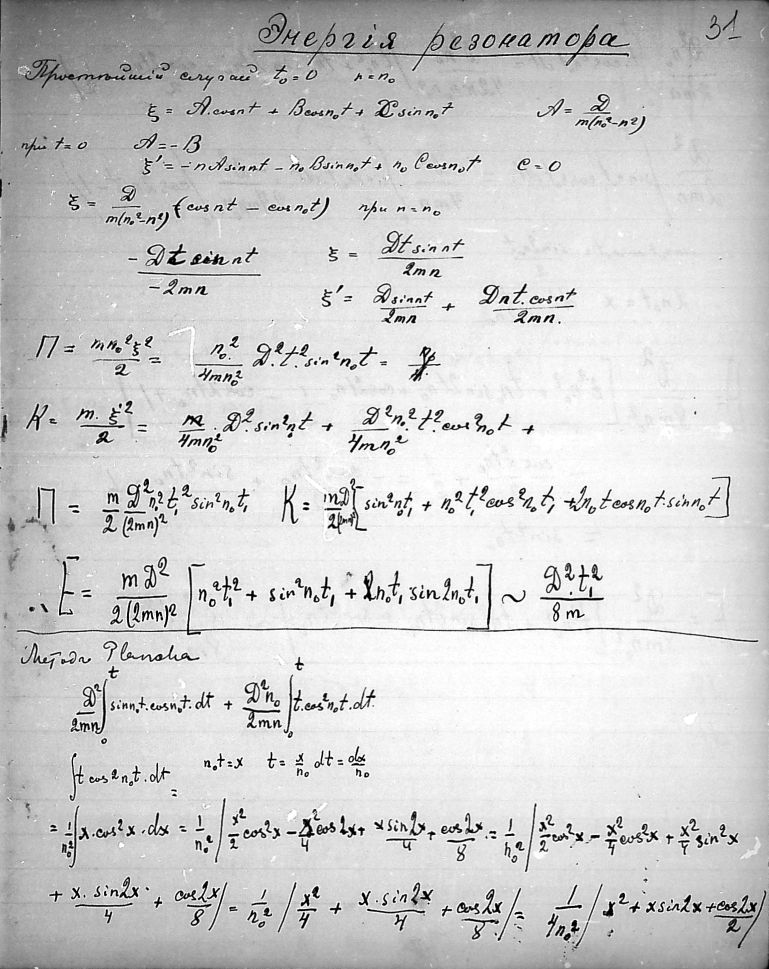 31
Энергія резонатора
Простѣйшій случай t₀=0 n=n₀
ξ = A.cosnt + Bcosn₀t + C sin n₀t A = D/m(n₀²−n²)
при t=0 A=−B
ξ' = −nAsinnt − n₀Bsinn₀t + n₀ C cosn₀t C=0
ξ = D/m(n₀²−n²) (cosnt − cosn₀t) при n=n₀
−Dt sin nt/−2mn ξ = Dt sin nt/2mn
ξ' = D sinnt/2mn + Dnt. cosnt/2mn.
П = mn₀²ξ²/2 = n₀²/4mn₀² D².t².sin²n₀t =
K = m.ξ'²/2 = m/4mn₀² .D².sin²n₀t + D²n₀²/4mn₀² .t².cos²n₀t +
П = m/2 D²n₀²/(2mn)² t₁² sin²n₀t₁ K = mD²/2(2mn)² [sin²n₀t₁ + n₀²t₁²cos²n₀t₁ + 2n₀t cosn₀t.sinn₀t]
∴ E = mD²/2(2mn)² [n₀²t₁² + sin²n₀t₁ + 2n₀t₁ sin2n₀t₁] ~ D².t₁²/8m
Метода Plancka
D²/2mn ∫₀ᵗ sinn₀t.cosn₀t.dt + D²n₀/2mn ∫₀ᵗ t.cos²n₀t.dt.
∫t cos²n₀t.dt = n₀t=x t = x/n₀ dt = dx/n₀
= 1/n₀² ∫x.cos²x.dx = 1/n₀² / x²/2 cos²x − x²/4 cos2x + x sin2x/4 + cos2x/8 = 1/n₀² / x²/2 cos²x − x²/4 cos²x + x²/4 sin²x
+ x.sin2x/4 + cos2x/8 / = 1/n₀² / x²/4 + x.sin2x/4 + cos2x/8 / = 1/4n₀² / x² + x sin2x + cos2x/2 /